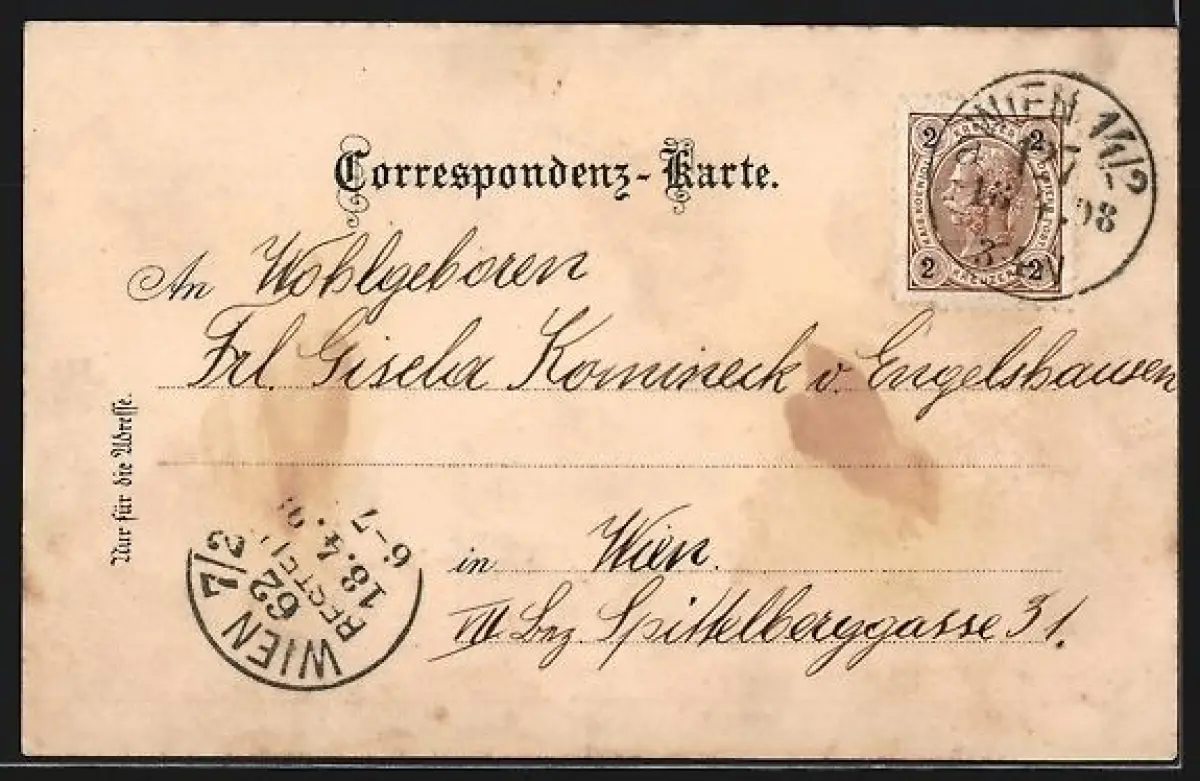 Correspondenz-Karte.
An Wohlgeboren
Frl. Gisela Komineck v. Engelshausen
in Wien.
VII Bez. Spittelberggasse 31.
Nur für die Adresse.
WIEN 1 4/2
18 98
3
2 KREUZER 2
2 KREUZER 2
WIEN 7/2
62
BESTELLT
18.4.98
6-7